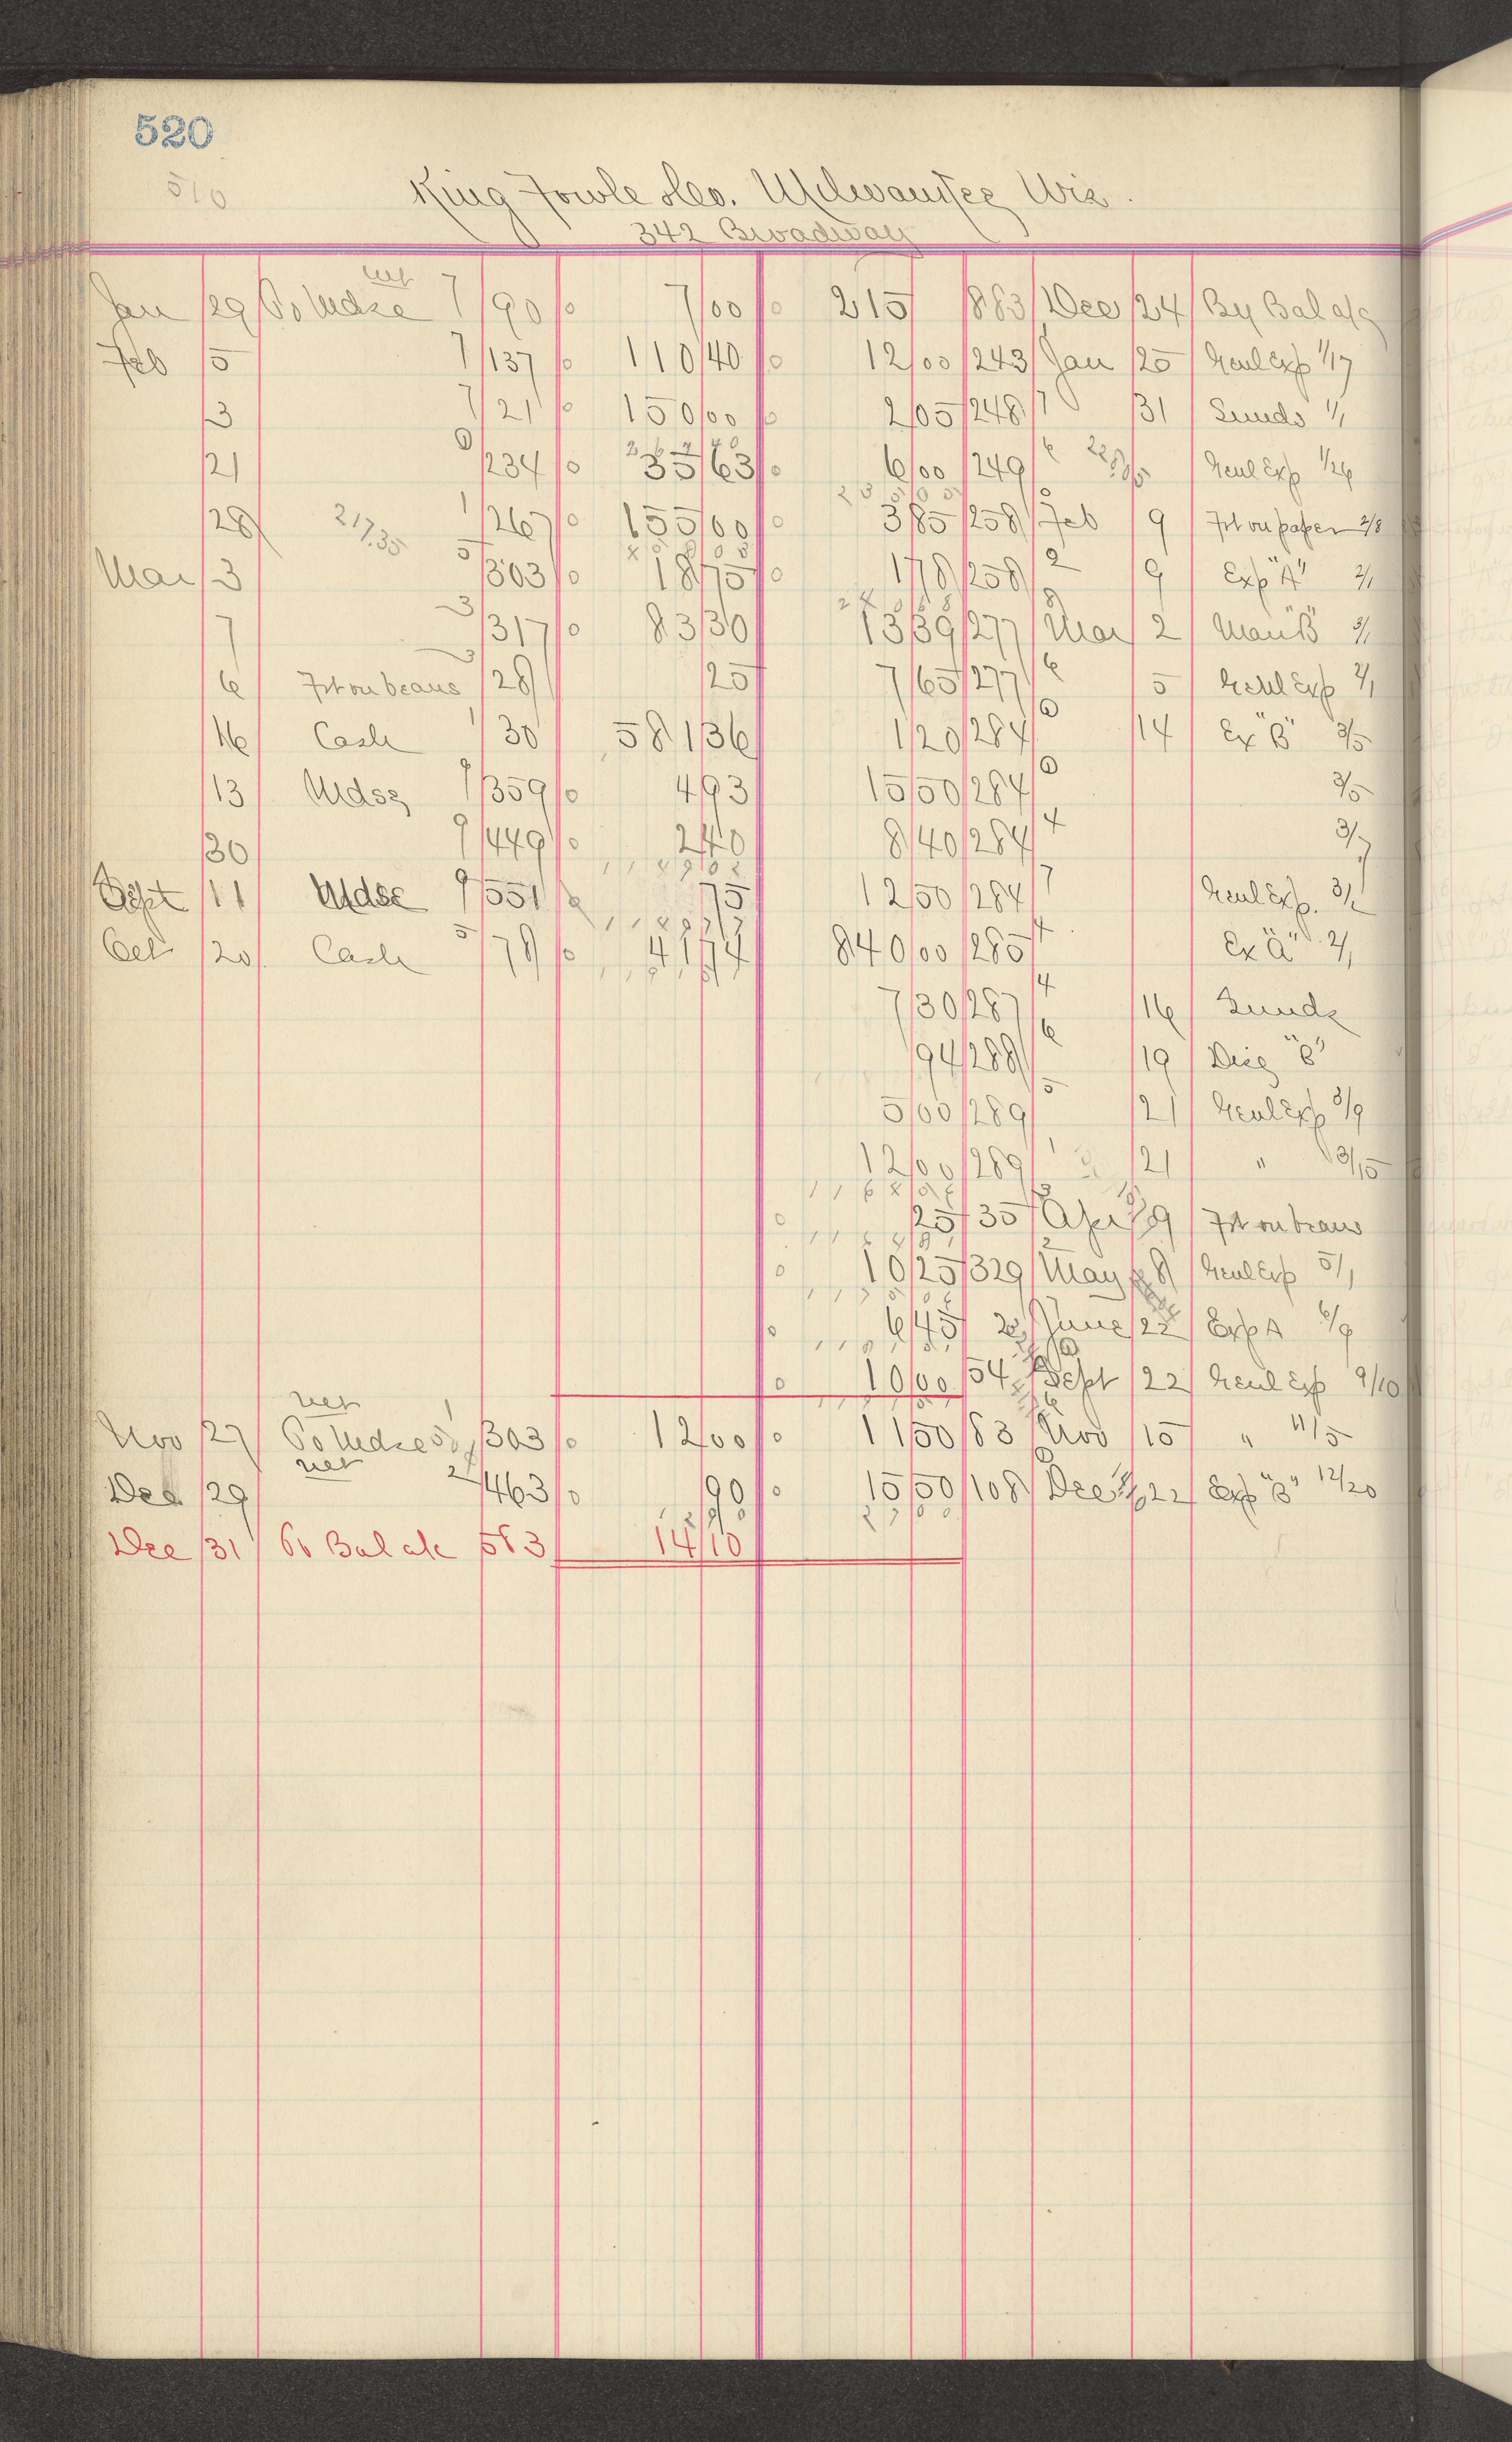 520
510
King Fowle & Co. Milwaukee Wis.
342 Broadway
net
Jan 29 To Mdse 7 90 7 00 2 15 883 Dec 24 By Bal a/c
Feb 5 7 137 110 40 12 00 243 Jan 25 Genl Exp 1/17
3 7 121 150 00 2 05 248 7 31 Sunds 1/1
21 9 234 35 63 6 00 249 6 Genl Exp 1/26
28 217.35 1 267 155 00 3 85 258 Feb 9 Frt on paper 2/8
Mar 3 5 303 18 75 1 78 258 2 9 Exp "A" 2/1
7 3 317 83 30 13 39 277 8 Mar 2 Man "B" 3/1
6 Frt on beans 3 28 25 7 65 277 6 5 Genl Exp 2/1
16 Cash 1 30 581 36 1 20 284 14 Ex "B" 3/5
13 Mdse 9 359 4 93 15 50 284 3/5
30 9 449 2 40 8 40 284 4 3/7
Sept 11 Mdse 9 551 75 12 50 284 7 Genl Exp. 3/2
Oct 20 Cash 5 78 41 74 840 00 285 4 Ex "A" 2/1
7 30 287 4 16 Sunds
94 288 6 19 Dis "B"
5 00 289 5 21 Genl Exp 3/9
12 00 289 1 21 " 3/15
25 35 Apr 9 Frt on beans
10 25 329 May 8 Genl Exp 5/1
6 45 June 22 Exp A 6/9
10 00 54 Sept 22 Genl Exp 9/10
net
Nov 27 To Mdse 303 12 00 11 50 83 Nov 15 " 11/5
net
Dec 29 2 463 90 15 50 108 Dec 22 Exp "B" 12/20
Dec 31 To Bal a/c 583 14 10